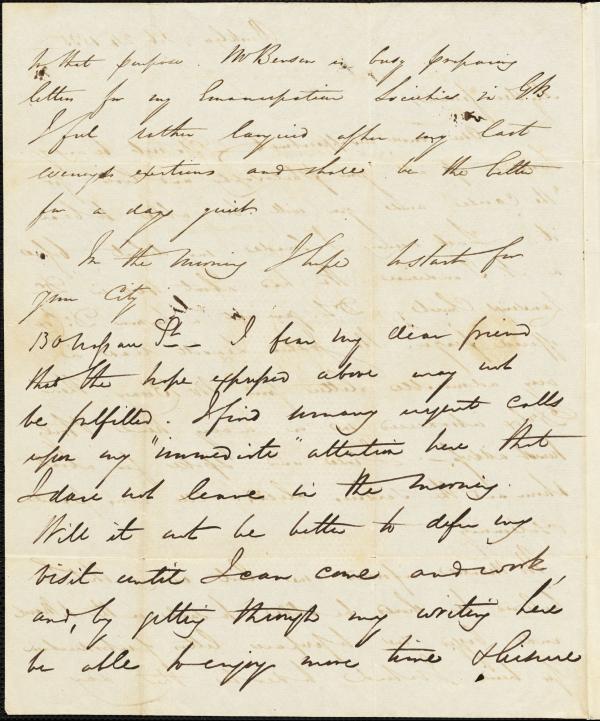 to that purpose. Mr Benson is busy preparing
letters for my Emancipation Societies in G.B.
I feel rather languid after my last
evening's exertions and shall be the better
for a days quiet
In the morning I hope to start for
your City
130 Nassau St. — I fear my dear friend
that the hope expressed above may not
be fulfilled. I find so many urgent calls
upon my "immediate" attention here that
I dare not leave in the morning.
Will it not be better to defer my
visit until I can come and work,
and, by getting through my writing here
be able to enjoy more time & leisure